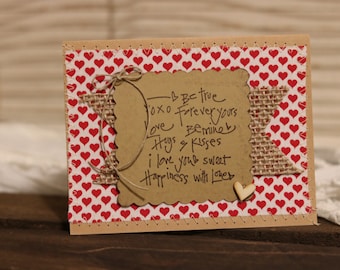 Be true
xoxo forever yours
Love Be mine
Hugs & Kisses
i love you sweet
Happiness with Love